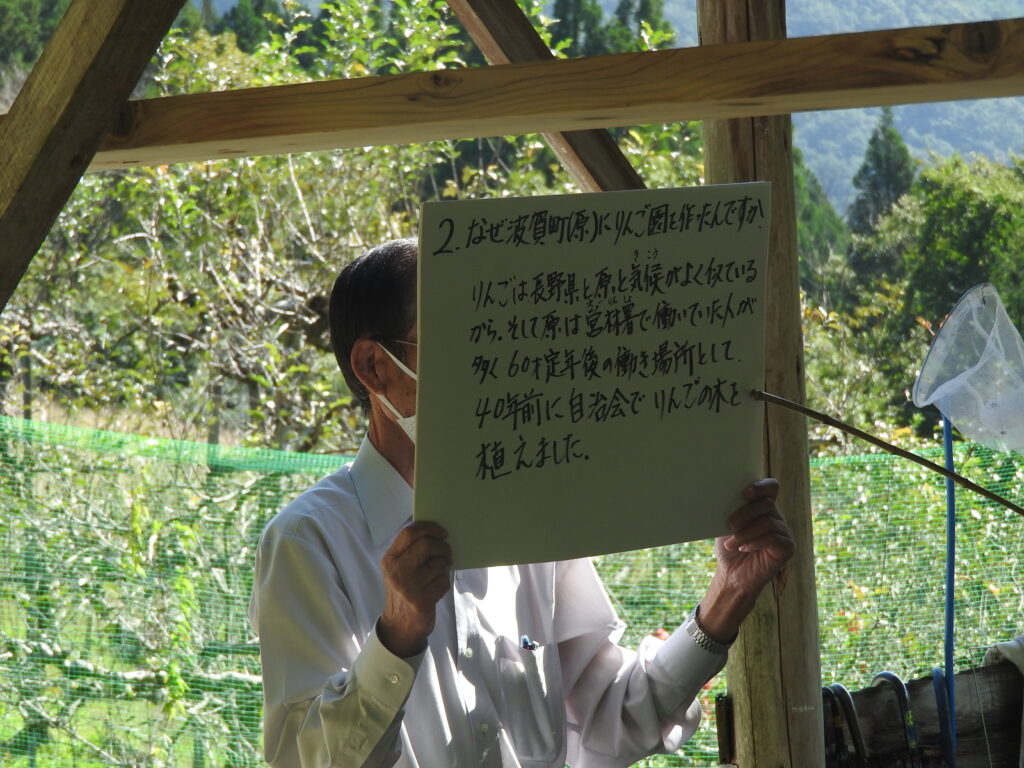 2. なぜ波賀町(原)にりんご園を作ったんですか。
きこう
りんごは長野県と原と気候がよく似ている
えいりんしょ
から。そして原は営林署で働いていた人が
多く60才定年後の働き場所として、
40年前に自治会でりんごの木を
植えました。